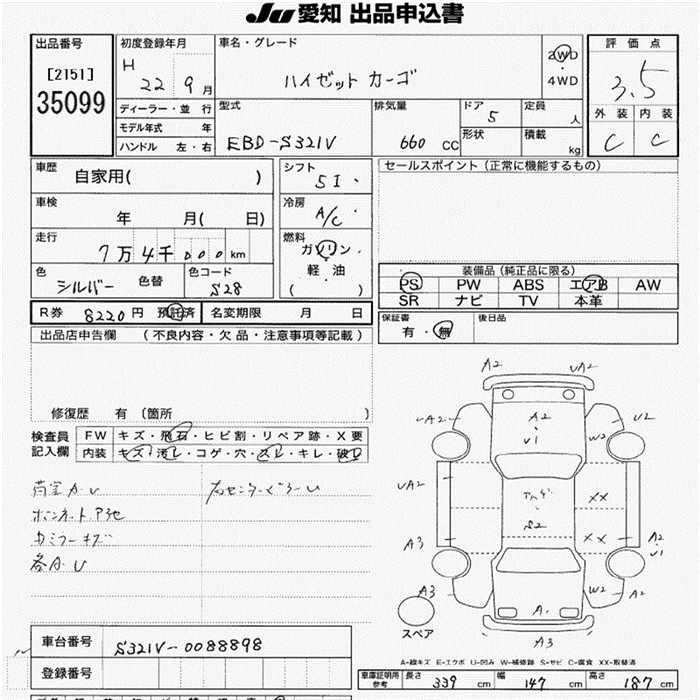 JU 愛知 出品申込書
出品番号
[2151]
35099
初度登録年月
H 22 9 月
車名・グレード
ハイゼットカーゴ
2WD
・
4WD
評価点
3.5
外装 内装
C C
ディーラー・並 行
モデル年式 年
ハンドル 左・右
型式
EBD-S321V
排気量
660 CC
ドア
5
形状
定員
人
積載
kg
車歴
自家用( )
シフト
5I
セールスポイント (正常に機能するもの)
車検
年 月( 日)
冷房
A/C
走行
7万4千000km
燃料
ガソリン・
軽 油
( )
色
シルバー
色替
色コード
S28
装備品(純正品に限る)
PS PW ABS エアB AW
SR ナビ TV 本革
R券 8220円 預託済
名変期限 月 日
保証書
有・無
後日品
出品店申告欄 (不良内容・欠品・注意事項等記載)
修復歴 有 (箇所 )
検査員
記入欄
FW キズ・飛石・ヒビ割・リペア跡・X要
内装 キズ・汚レ・コゲ・穴・スレ・キレ・破レ
荷室A.U
右センターピラーU
ボンネット.P他
各A.U
A2 UA2
UA2 U2
A2
U1
W2
UA2
XX
S2
XX
A3
A2
U1
A3
W2
A2
スペア
A.
A3
A-線キズ E-エクボ U-凹み W-補修跡 S-サビ C-腐食 XX-取替済
車台番号
S321V-0088898
登録番号
車庫証明用
参考
長さ 339 cm 幅 147 cm 高さ 187 cm